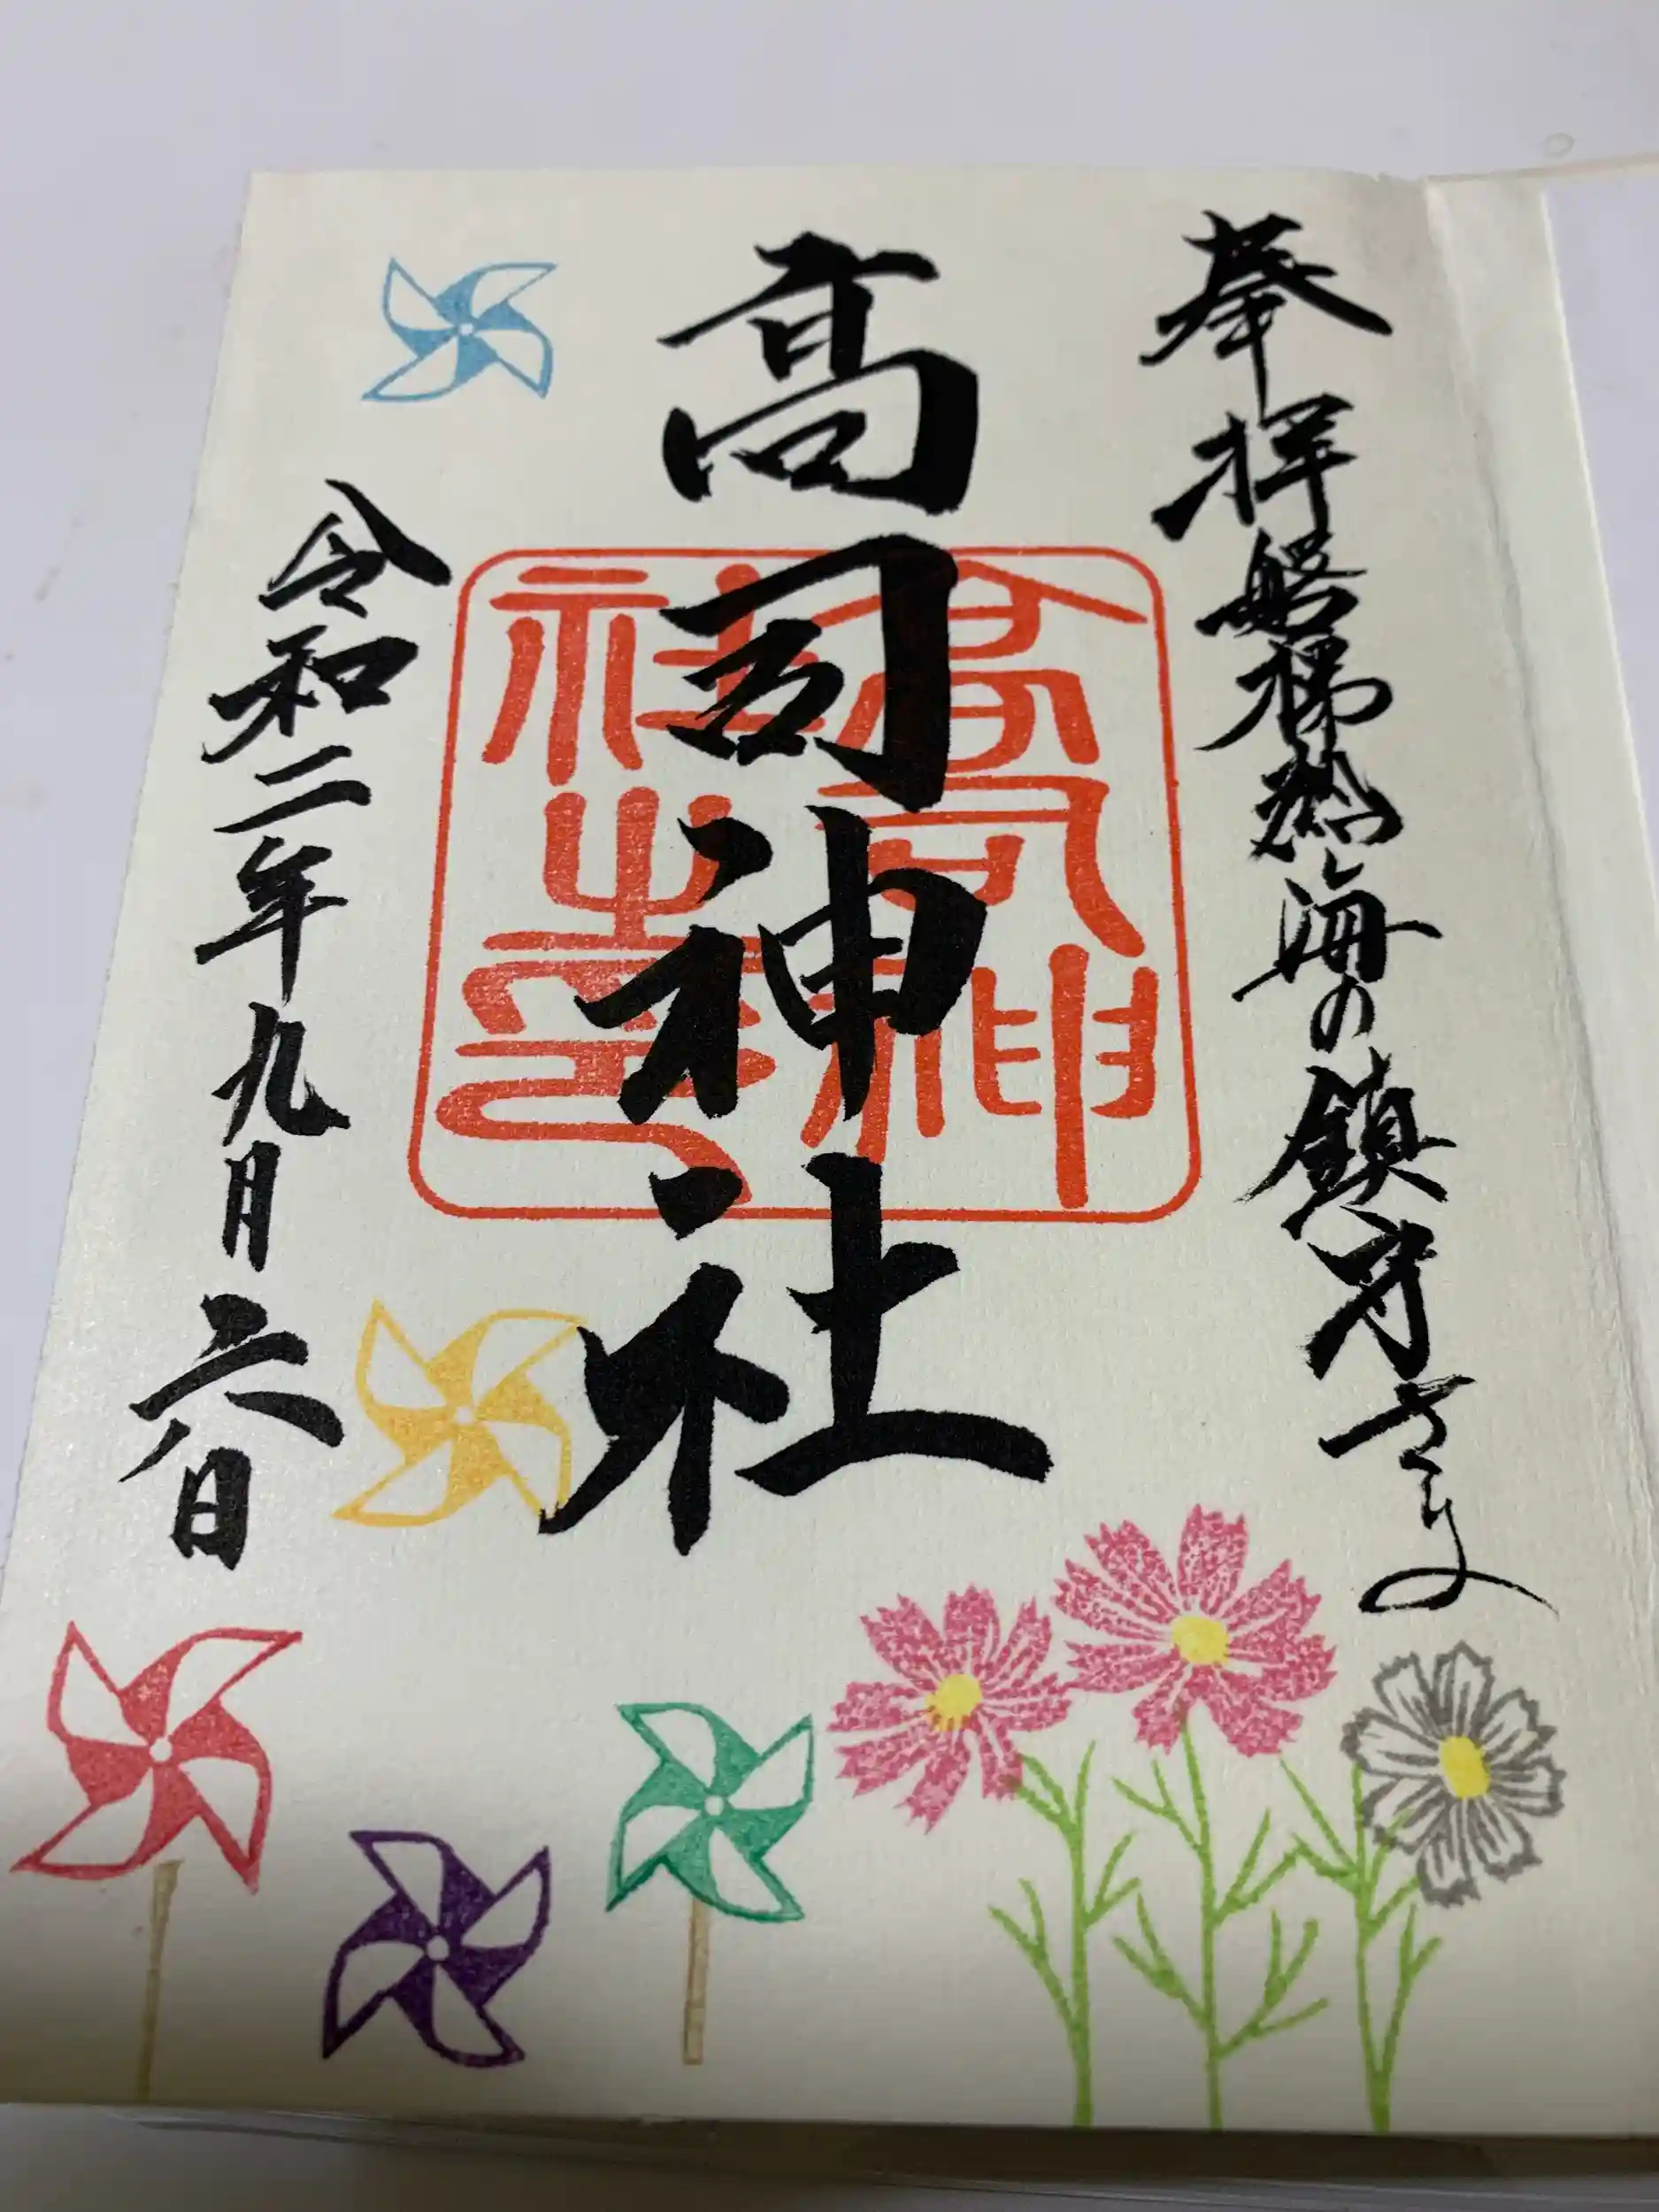 奉拝 磐梯熱海の鎮守さま
高司神社
高司神社之印
令和二年九月六日